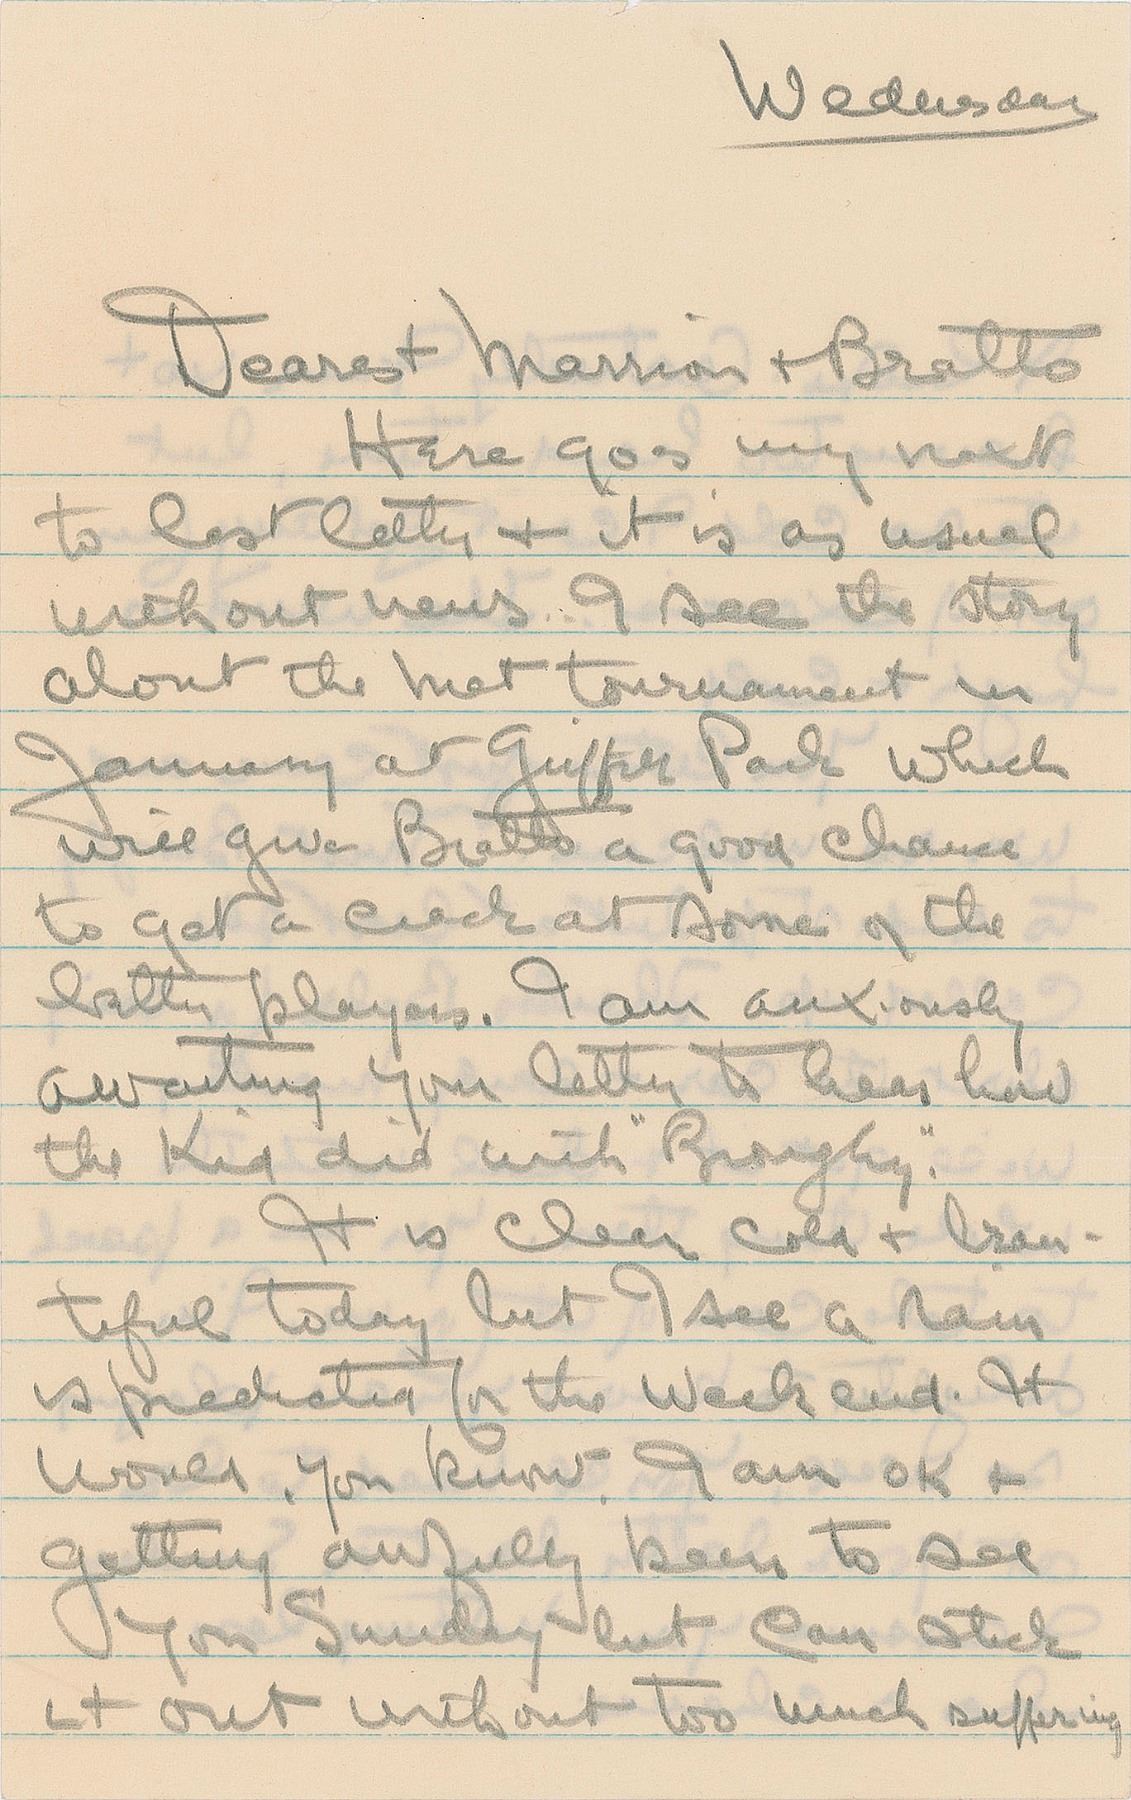 Wednesday
Dearest Marrion + Bratto
Here goes my next
to last letter + it is as usual
without news. I see the story
about the Met tournament in
January at Griffith Park which
will give Bratto a good chance
to get a crack at some of the
better players. I am anxiously
awaiting your letter to hear how
the Kid did with "Broughy".
It is clear cold + beau-
tiful today but I see a rain
is predicted for the week end. It
would, you know. I am OK +
getting awfully keen to see
you Sunday but can stick
it out without too much suffering